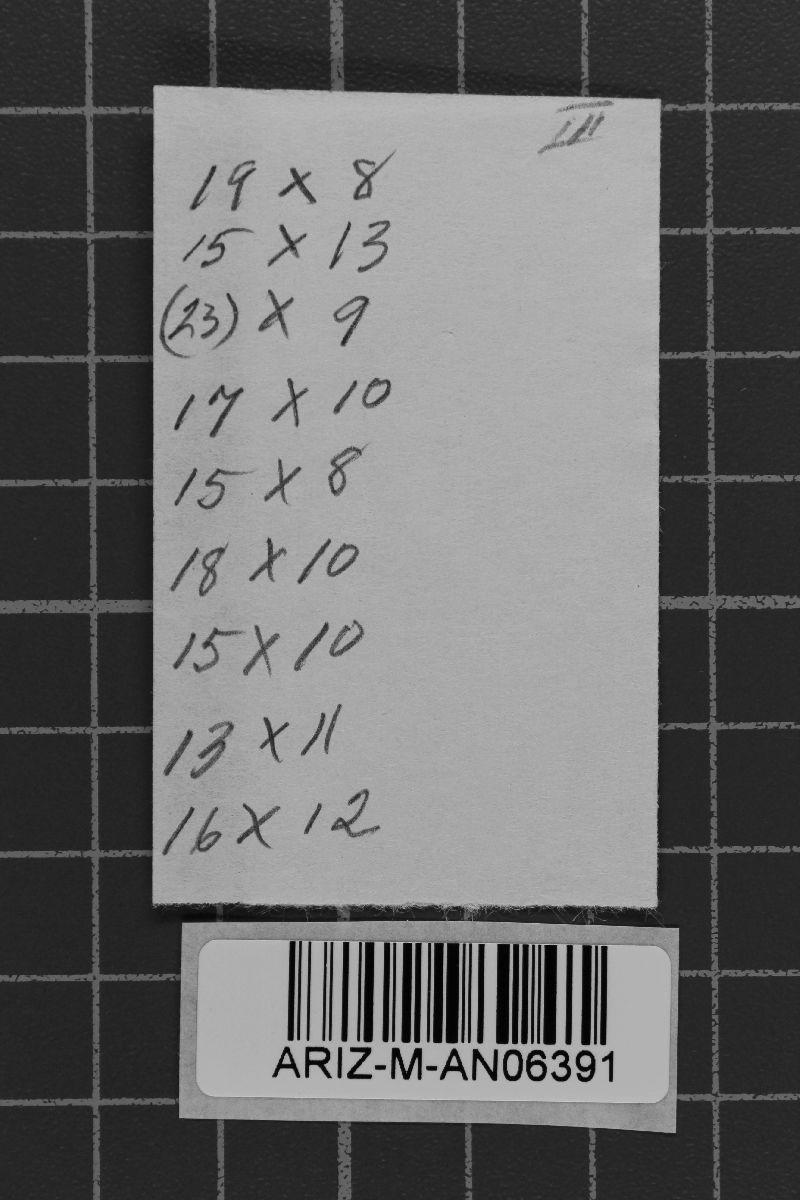 III
19 x 8
15 x 13
(23) x 9
17 x 10
15 x 8
18 x 10
15 x 10
13 x 11
16 x 12
ARIZ-M-AN06391